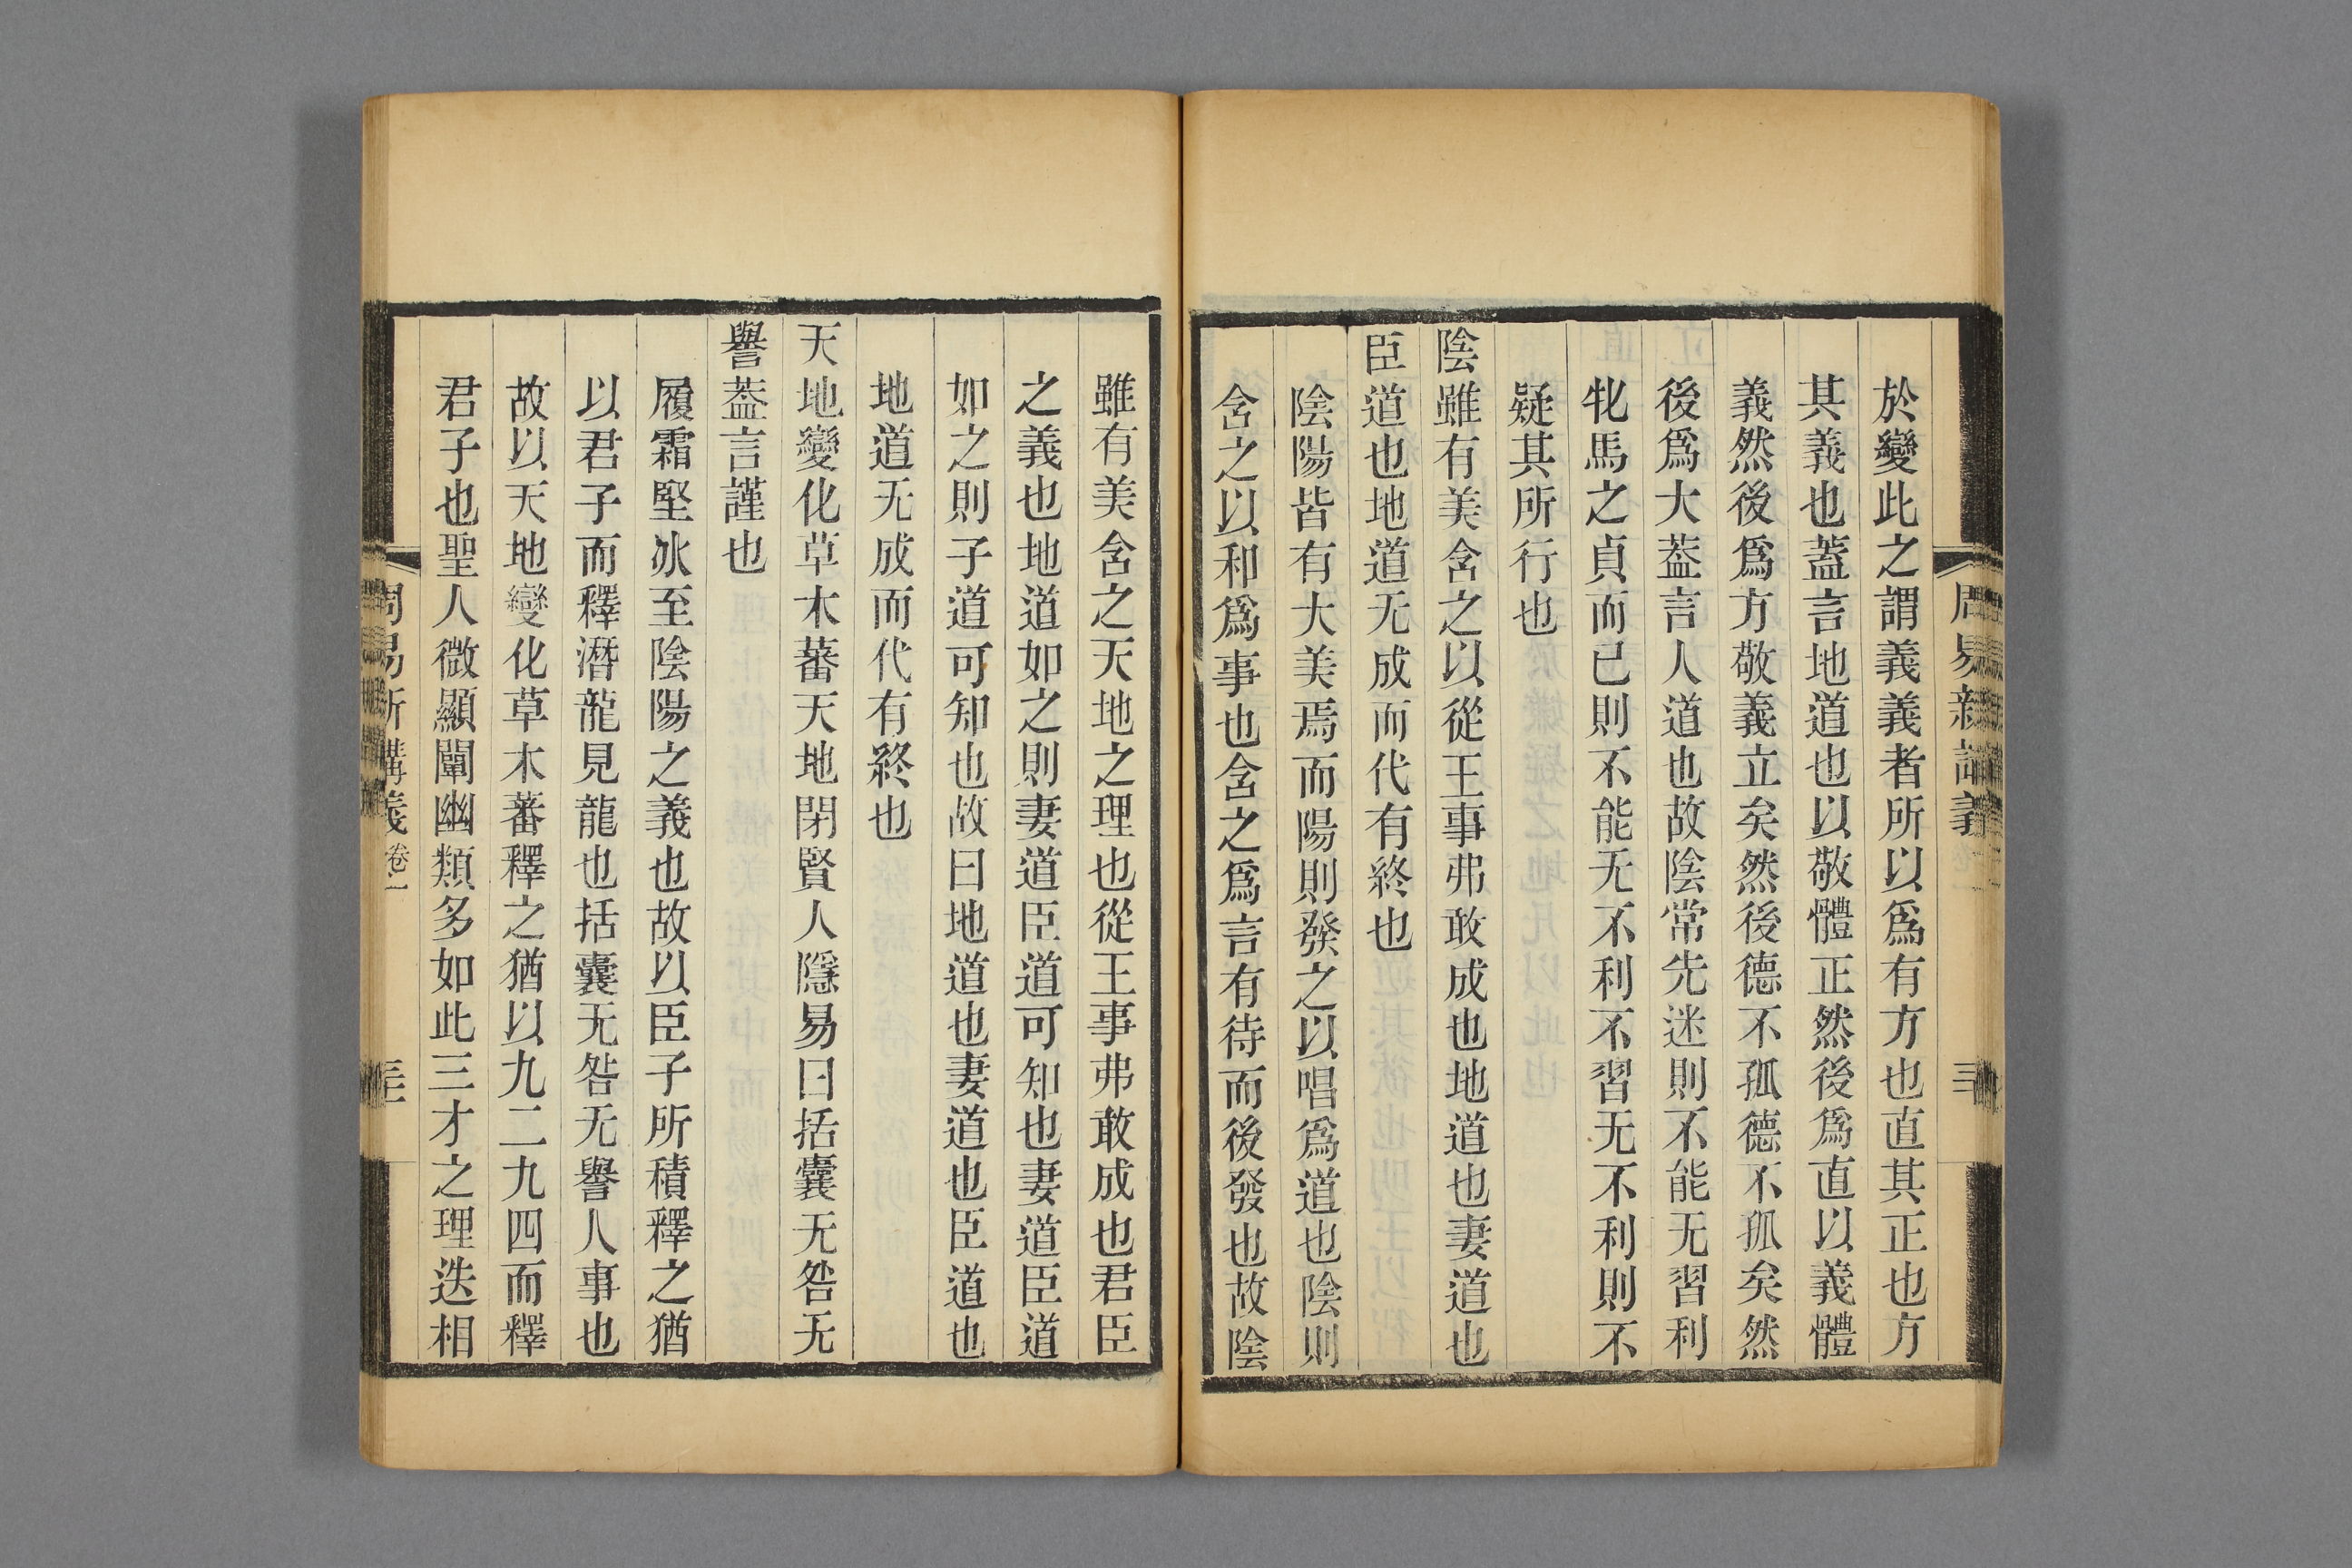 周易新講義
三
於變此之謂義義者所以爲有方也直其正也方
其義也葢言地道也以敬體正然後爲直以義體
義然後爲方敬義立矣然後德不孤德不孤矣然
後爲大葢言人道也故陰常先迷則不能无習利
牝馬之貞而已則不能无不利不習无不利則不
疑其所行也
陰雖有美含之以從王事弗敢成也地道也妻道也
臣道也地道无成而代有終也
陰陽皆有大美焉而陽則發之以唱爲道也陰則
含之以和爲事也含之爲言有待而後發也故陰
雖有美含之天地之理也從王事弗敢成也君臣
之義也地道如之則妻道臣道可知也妻道臣道
如之則子道可知也故曰地道也妻道也臣道也
地道无成而代有終也
天地變化草木蕃天地閉賢人隱易曰括囊无咎无
譽葢言謹也
履霜堅冰至陰陽之義也故以臣子所積釋之猶
以君子而釋潛龍見龍也括囊无咎无譽人事也
故以天地變化草木蕃釋之猶以九二九四而釋
君子也聖人微顯闡幽類多如此三才之理迭相
周易新講義卷一